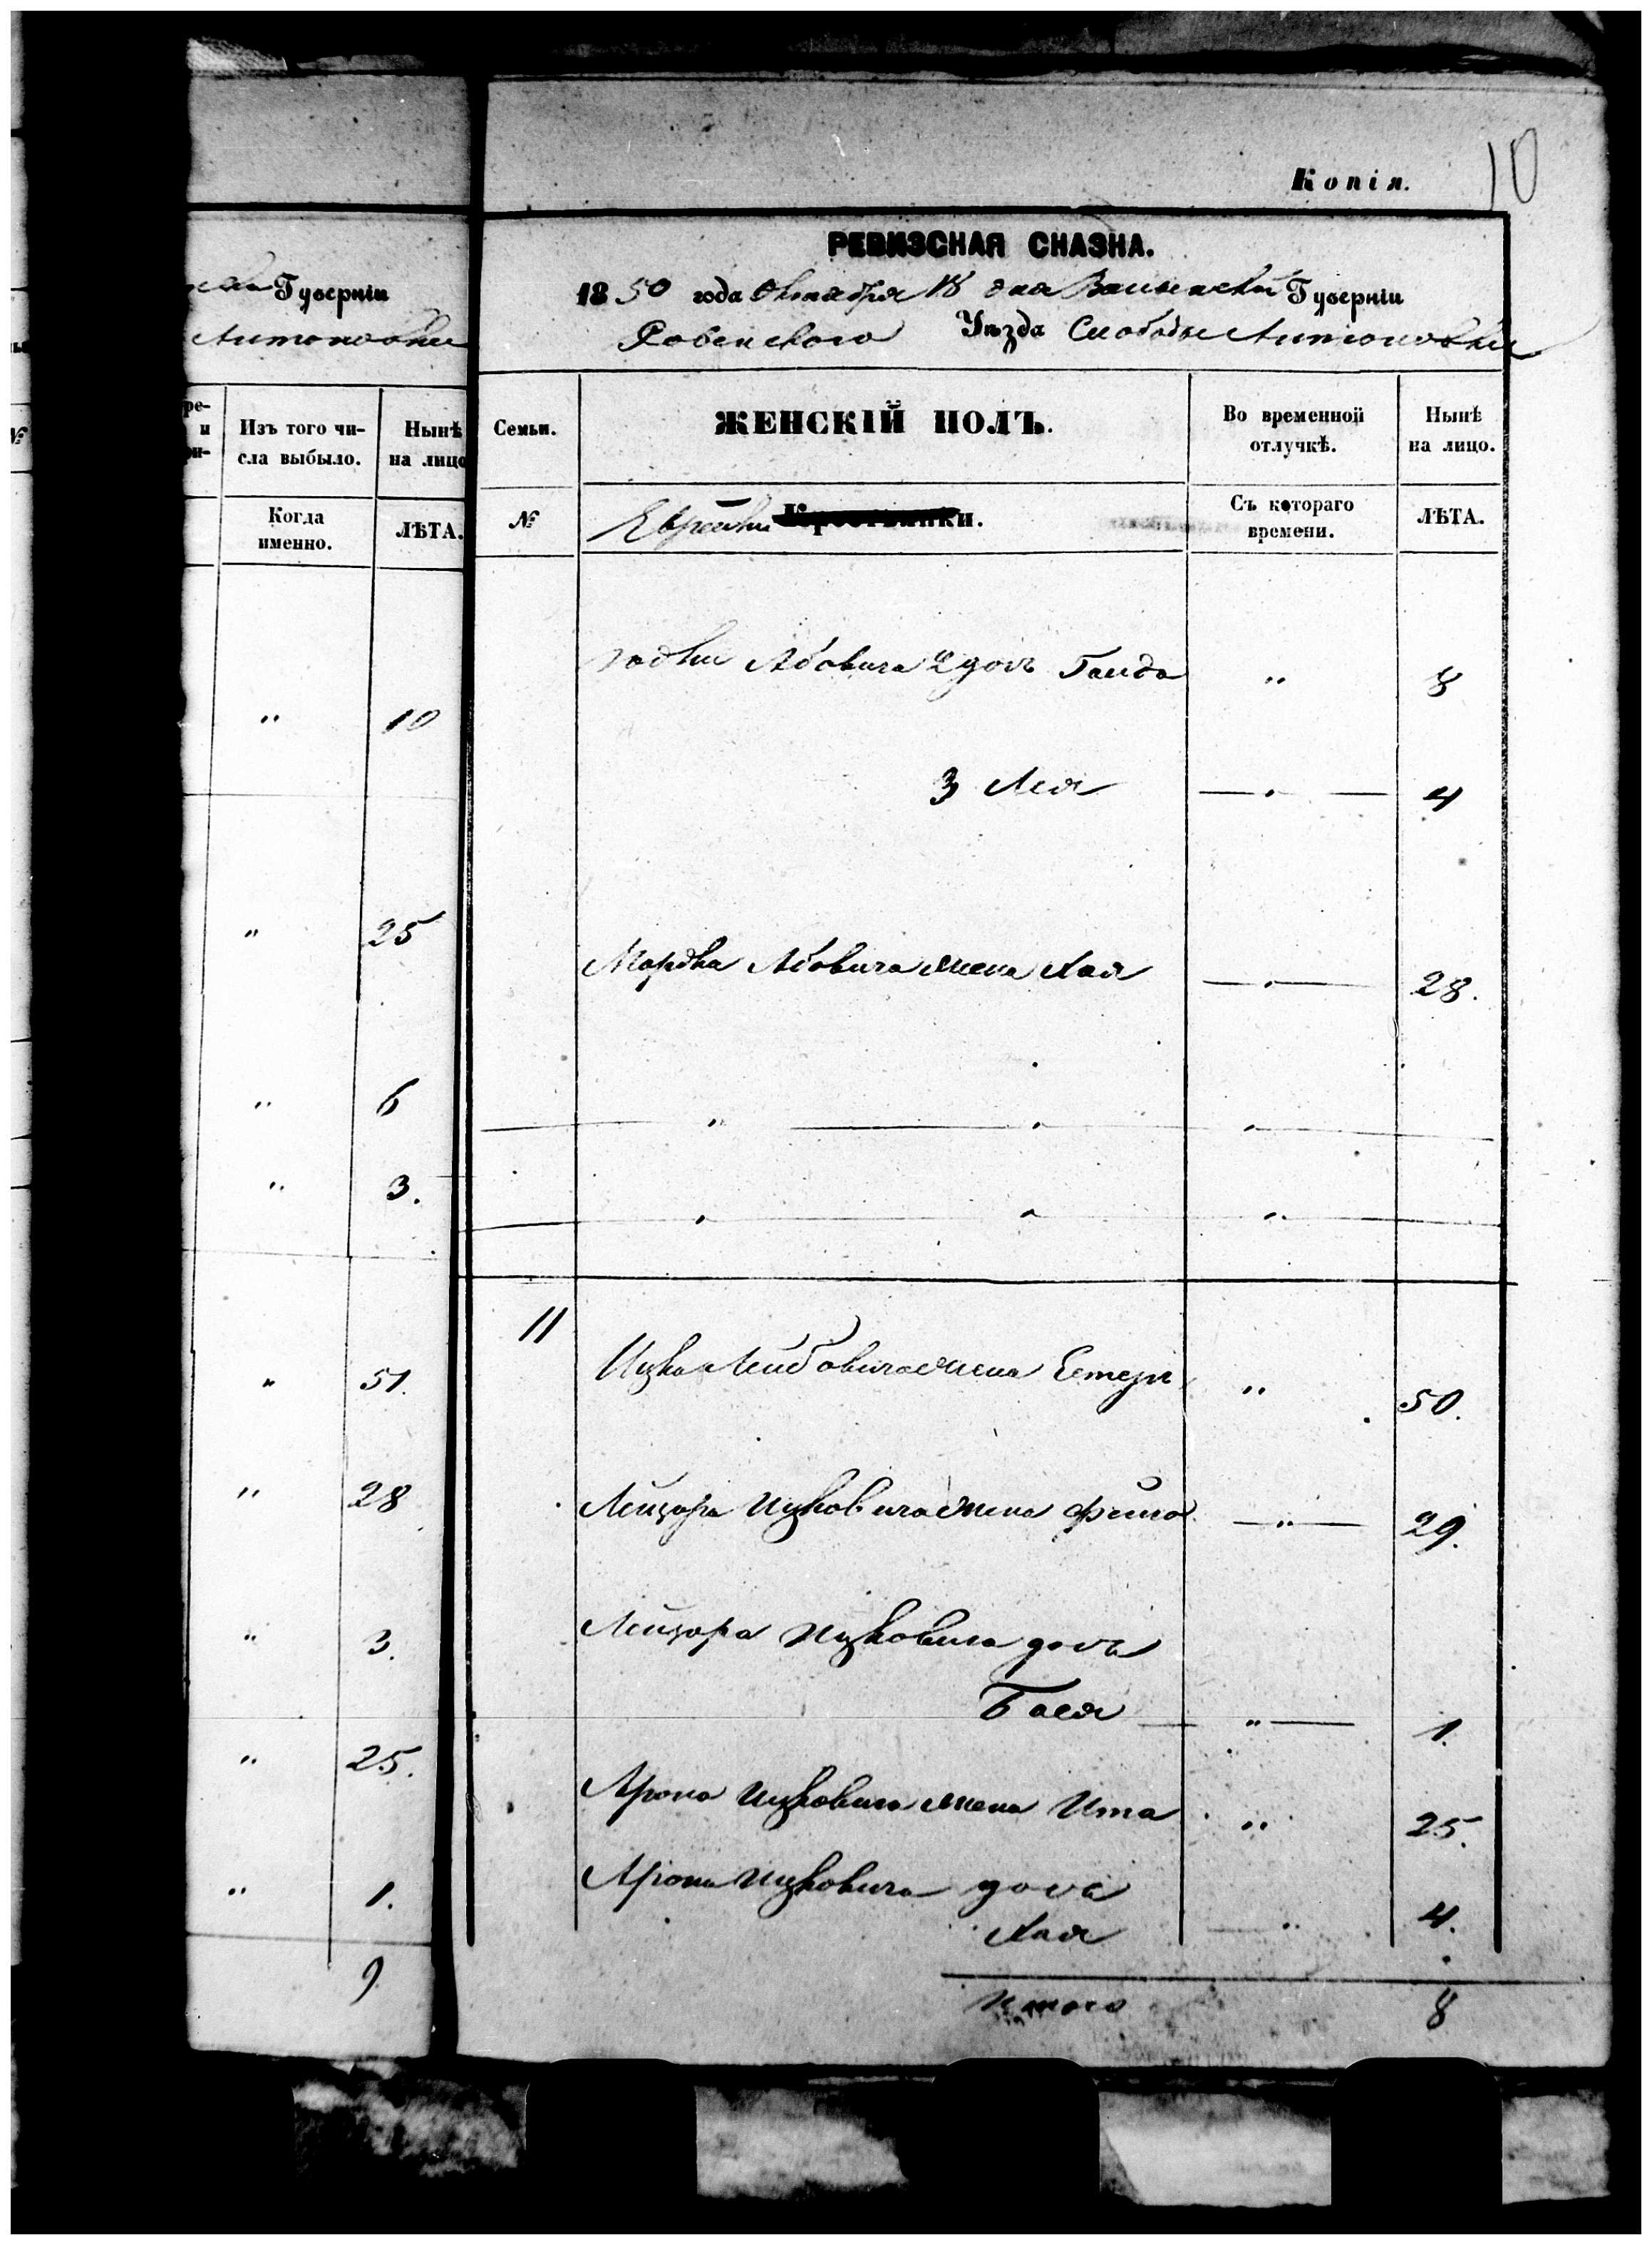 10
Копія.
РЕВИЗСКАЯ СКАЗКА.
Губерніи
Антоновки
1850 года Октября 18 дня Волынской Губерніи
Ровенского Уѣзда Слободы Антоновки
Изъ того числа выбыло.
Нынѣ на лицо
Семьи.
ЖЕНСКІЙ ПОЛЪ.
Во временной отлучкѣ.
Нынѣ на лицо.
Когда именно.
ЛѢТА.
№
Еврейки
Съ котораго времени.
ЛѢТА.
Абовича 2 дочь " 8
" 10
3 Лея 4
" 25
Мордка Абовича жена Хая 28.
" 6
" 3.
11
Ицка Лейбовича жена Естер " 50.
" 51.
" 28
Лейзора Ицковича жена " 29.
Лейзора Ицковича дочь
" 3.
Бася " 1.
" 25.
Арона Ицковича жена Ита " 25.
Арона Ицковича дочь
" 1.
Хая " 4.
9
Итого 8